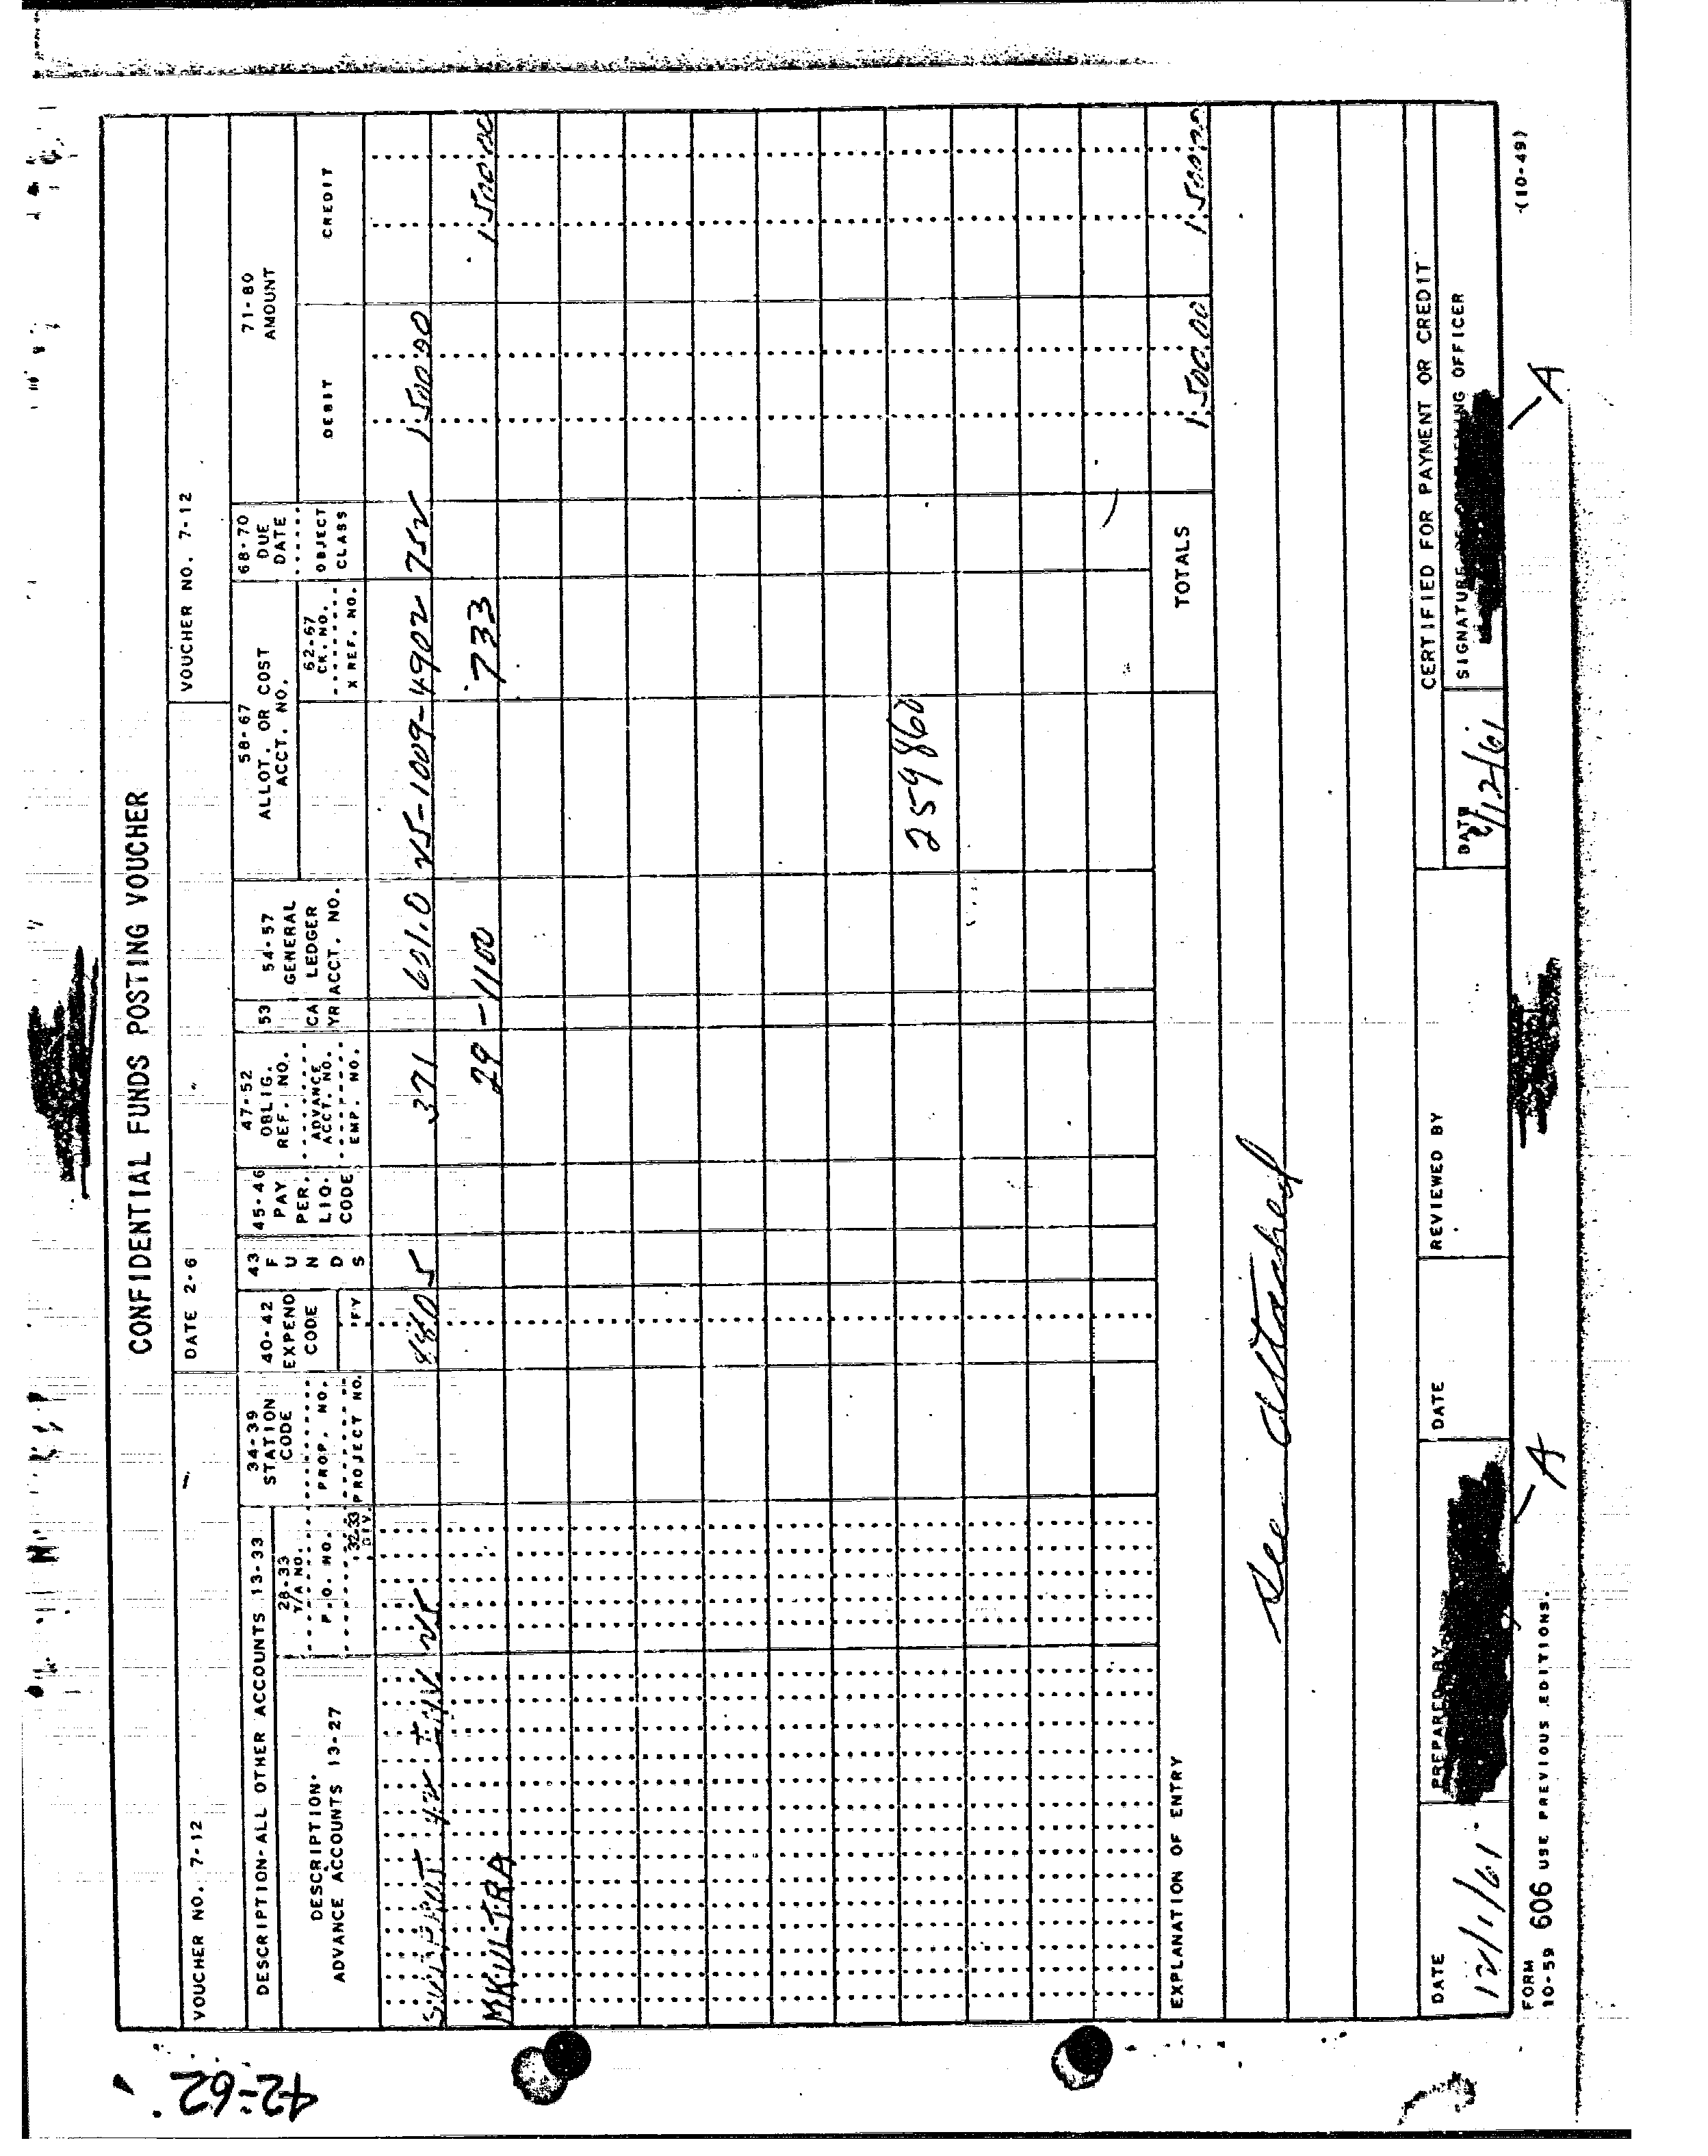 42-62
CONFIDENTIAL FUNDS POSTING VOUCHER
VOUCHER NO. 7-12
DATE 2-6
VOUCHER NO. 7-12
DESCRIPTION-ALL OTHER ACCOUNTS 13-33
DESCRIPTION-
ADVANCE ACCOUNTS 13-27
28-33
T/A NO.
P.O. NO.
32-33
DIV.
34-39
STATION
CODE
PROP. NO.
PROJECT NO.
40-42
EXPEND
CODE
FY
43
F
U
N
D
S
45-46
PAY
PER.
LIQ.
CODE
47-52
OBLIG.
REF. NO.
ADVANCE
ACCT. NO.
EMP. NO.
53
CA
YR
54-57
GENERAL
LEDGER
ACCT. NO.
58-67
ALLOT. OR COST
ACCT. NO.
62-67
CK. NO.
X REF. NO.
68-70
DUE
DATE
OBJECT
CLASS
71-80
AMOUNT
DEBIT
CREDIT
42 INV 25 5 371 601.0 25-1009-4902 752 1,500.00
MKULTRA 29 -1100 733 1,500.00
259860
TOTALS 1,500.00 1,500.00
EXPLANATION OF ENTRY
See attached
CERTIFIED FOR PAYMENT OR CREDIT
DATE
12/1/61
PREPARED BY
DATE
REVIEWED BY
DATE
/12/61
SIGNATURE OF CERTIFYING OFFICER
A
A
FORM
10-59 606 USE PREVIOUS EDITIONS.
(10-49)